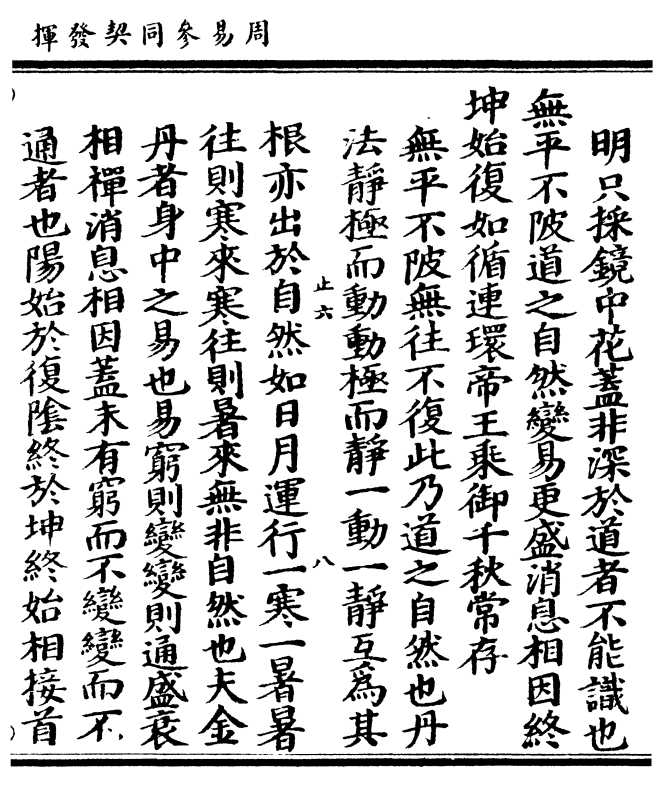 周易參同契發揮
明只採鏡中花蓋非深於道者不能識也
無平不陂道之自然變易更盛消息相因終
坤始復如循連環帝王乘御千秋常存
無平不陂無往不復此乃道之自然也丹
法靜極而動動極而靜一動一靜互爲其
止六 八
根亦出於自然如日月運行一寒一暑暑
往則寒來寒往則暑來無非自然也夫金
丹者身中之易也易窮則變變則通盛衰
相禪消息相因蓋未有窮而不變變而不
通者也陽始於復陰終於坤終始相接首